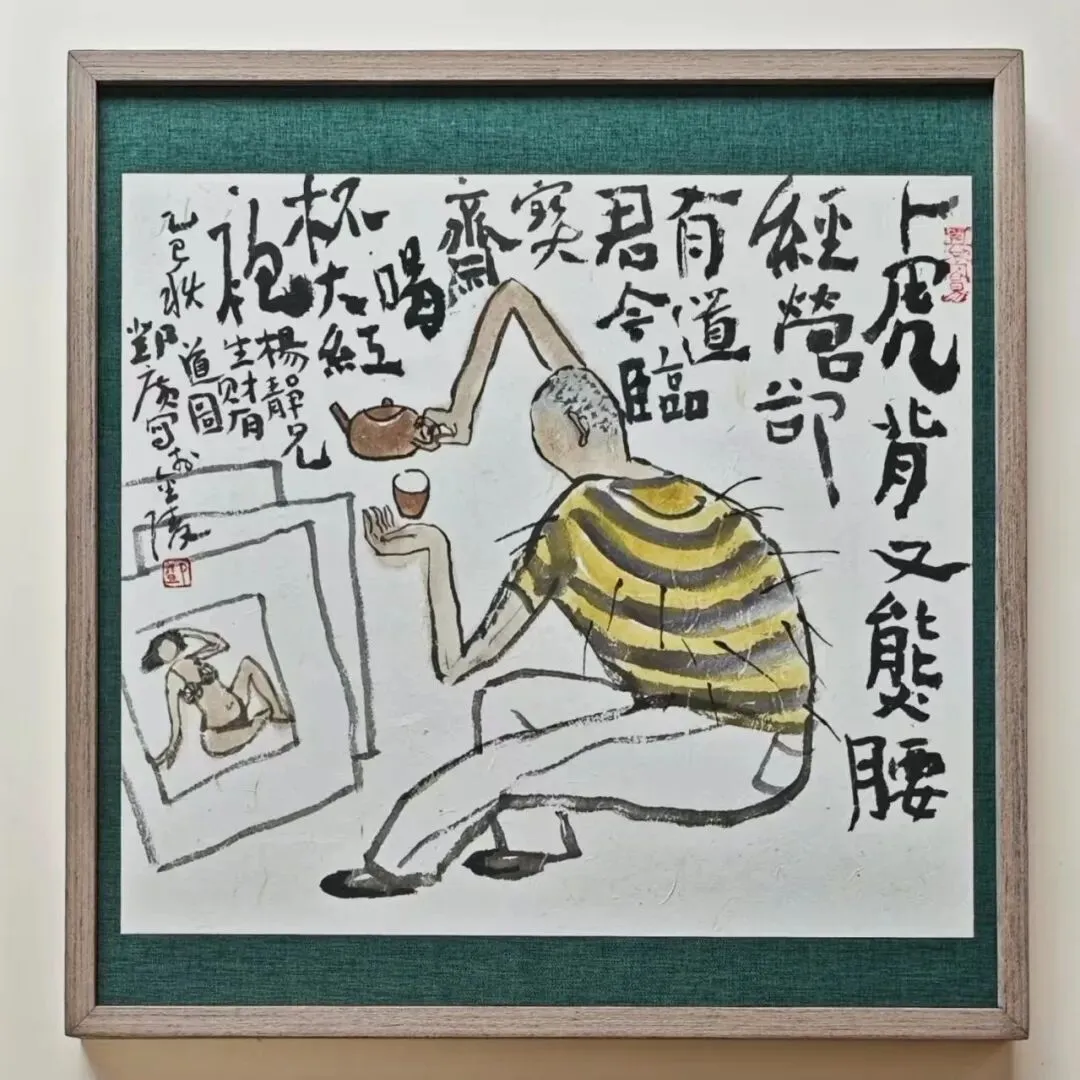 虎背又熊腰
經營部
有道
君今臨
寶
齋
喝
杯大紅
袍
楊靜兄
生财有
道圖
乙巳秋
廣寫於金陵